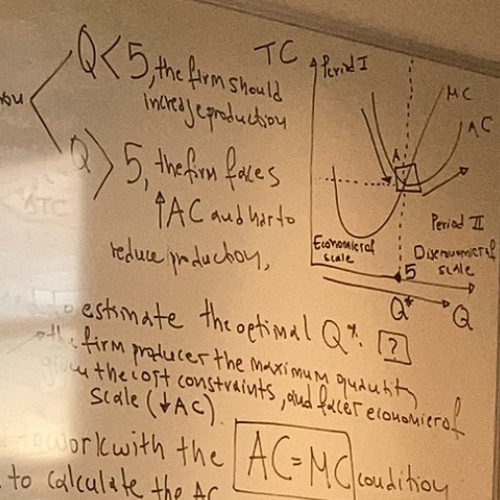 Q < 5, the firm should
increase production
Q > 5, the firm faces
↑AC and has to
reduce production,
TC
Period I
MC
AC
A
Period II
Economies of
scale
Diseconomies of
scale
5
Q*
Q
to estimate the optimal Q*. ?
the firm produces the maximum quantity
given the cost constraints, and faces economies of
scale (↓AC).
work with the AC=MC condition
to calculate the AC